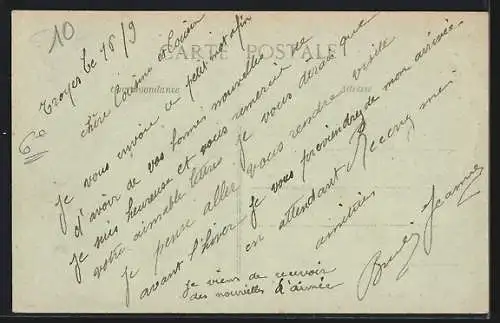 10
CARTE POSTALE
Correspondance
Adresse
Troyes le 18/9
60
Chère Cousine et Cousin
Je vous envoie ce petit mot afin
d'avoir de vos bonnes nouvelles
Je suis heureuse et vous remercie de
votre aimable lettre je vous dirais que
je pense aller vous rendre visite
avant l'hiver je vous préviendrez de mon arrivée
en attendant Recevez mes
amitiés
Jeanne
je viens de recevoir
des nouvelles d'aimée